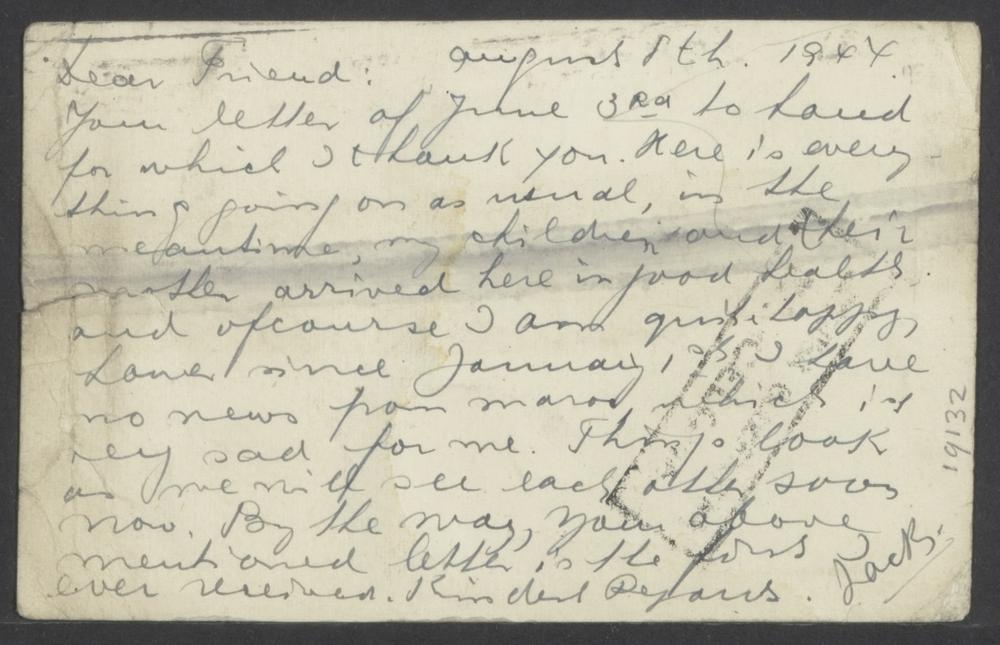 Dear Friend: August 8th. 1944
Your letter of June 3rd to hand
for which I thank you. Here is every
thing going on as usual, in the
meantime, my children and their
mother arrived here in good health
and ofcourse I am quite happy,
since January 1st I have
no news from which is
very sad for me. Things look
as we will see each other soon
now. By the way, your above
mentioned letter is the first I
ever received. Kindest Regards.
Jack.
19132